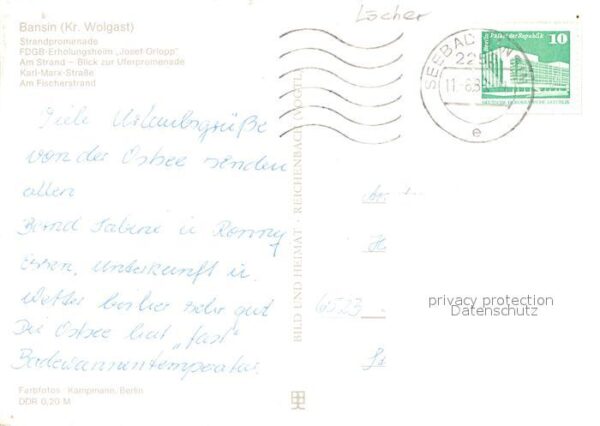 Löcher
Bansin (Kr. Wolgast)
Strandpromenade
FDGB-Erholungsheim „Josef Orlopp"
Am Strand – Blick zur Uferpromenade
Karl-Marx-Straße
Am Fischerstrand
Viele Urlaubsgrüße
von der Ostsee senden
allen
Bernd Sabine u Ronny
Essen, Unterkunft u.
Wetter bisher sehr gut
Die Ostsee hat „fast"
Badewannentemperatur.
Farbfotos: Kampmann, Berlin
DDR 0,20 M
BILD UND HEIMAT · REICHENBACH (VOGTL)
SEEBAD
225
e
Berlin, Palast der Republik
10
DEUTSCHE DEMOKRATISCHE REPUBLIK
6523
privacy protection
Datenschutz